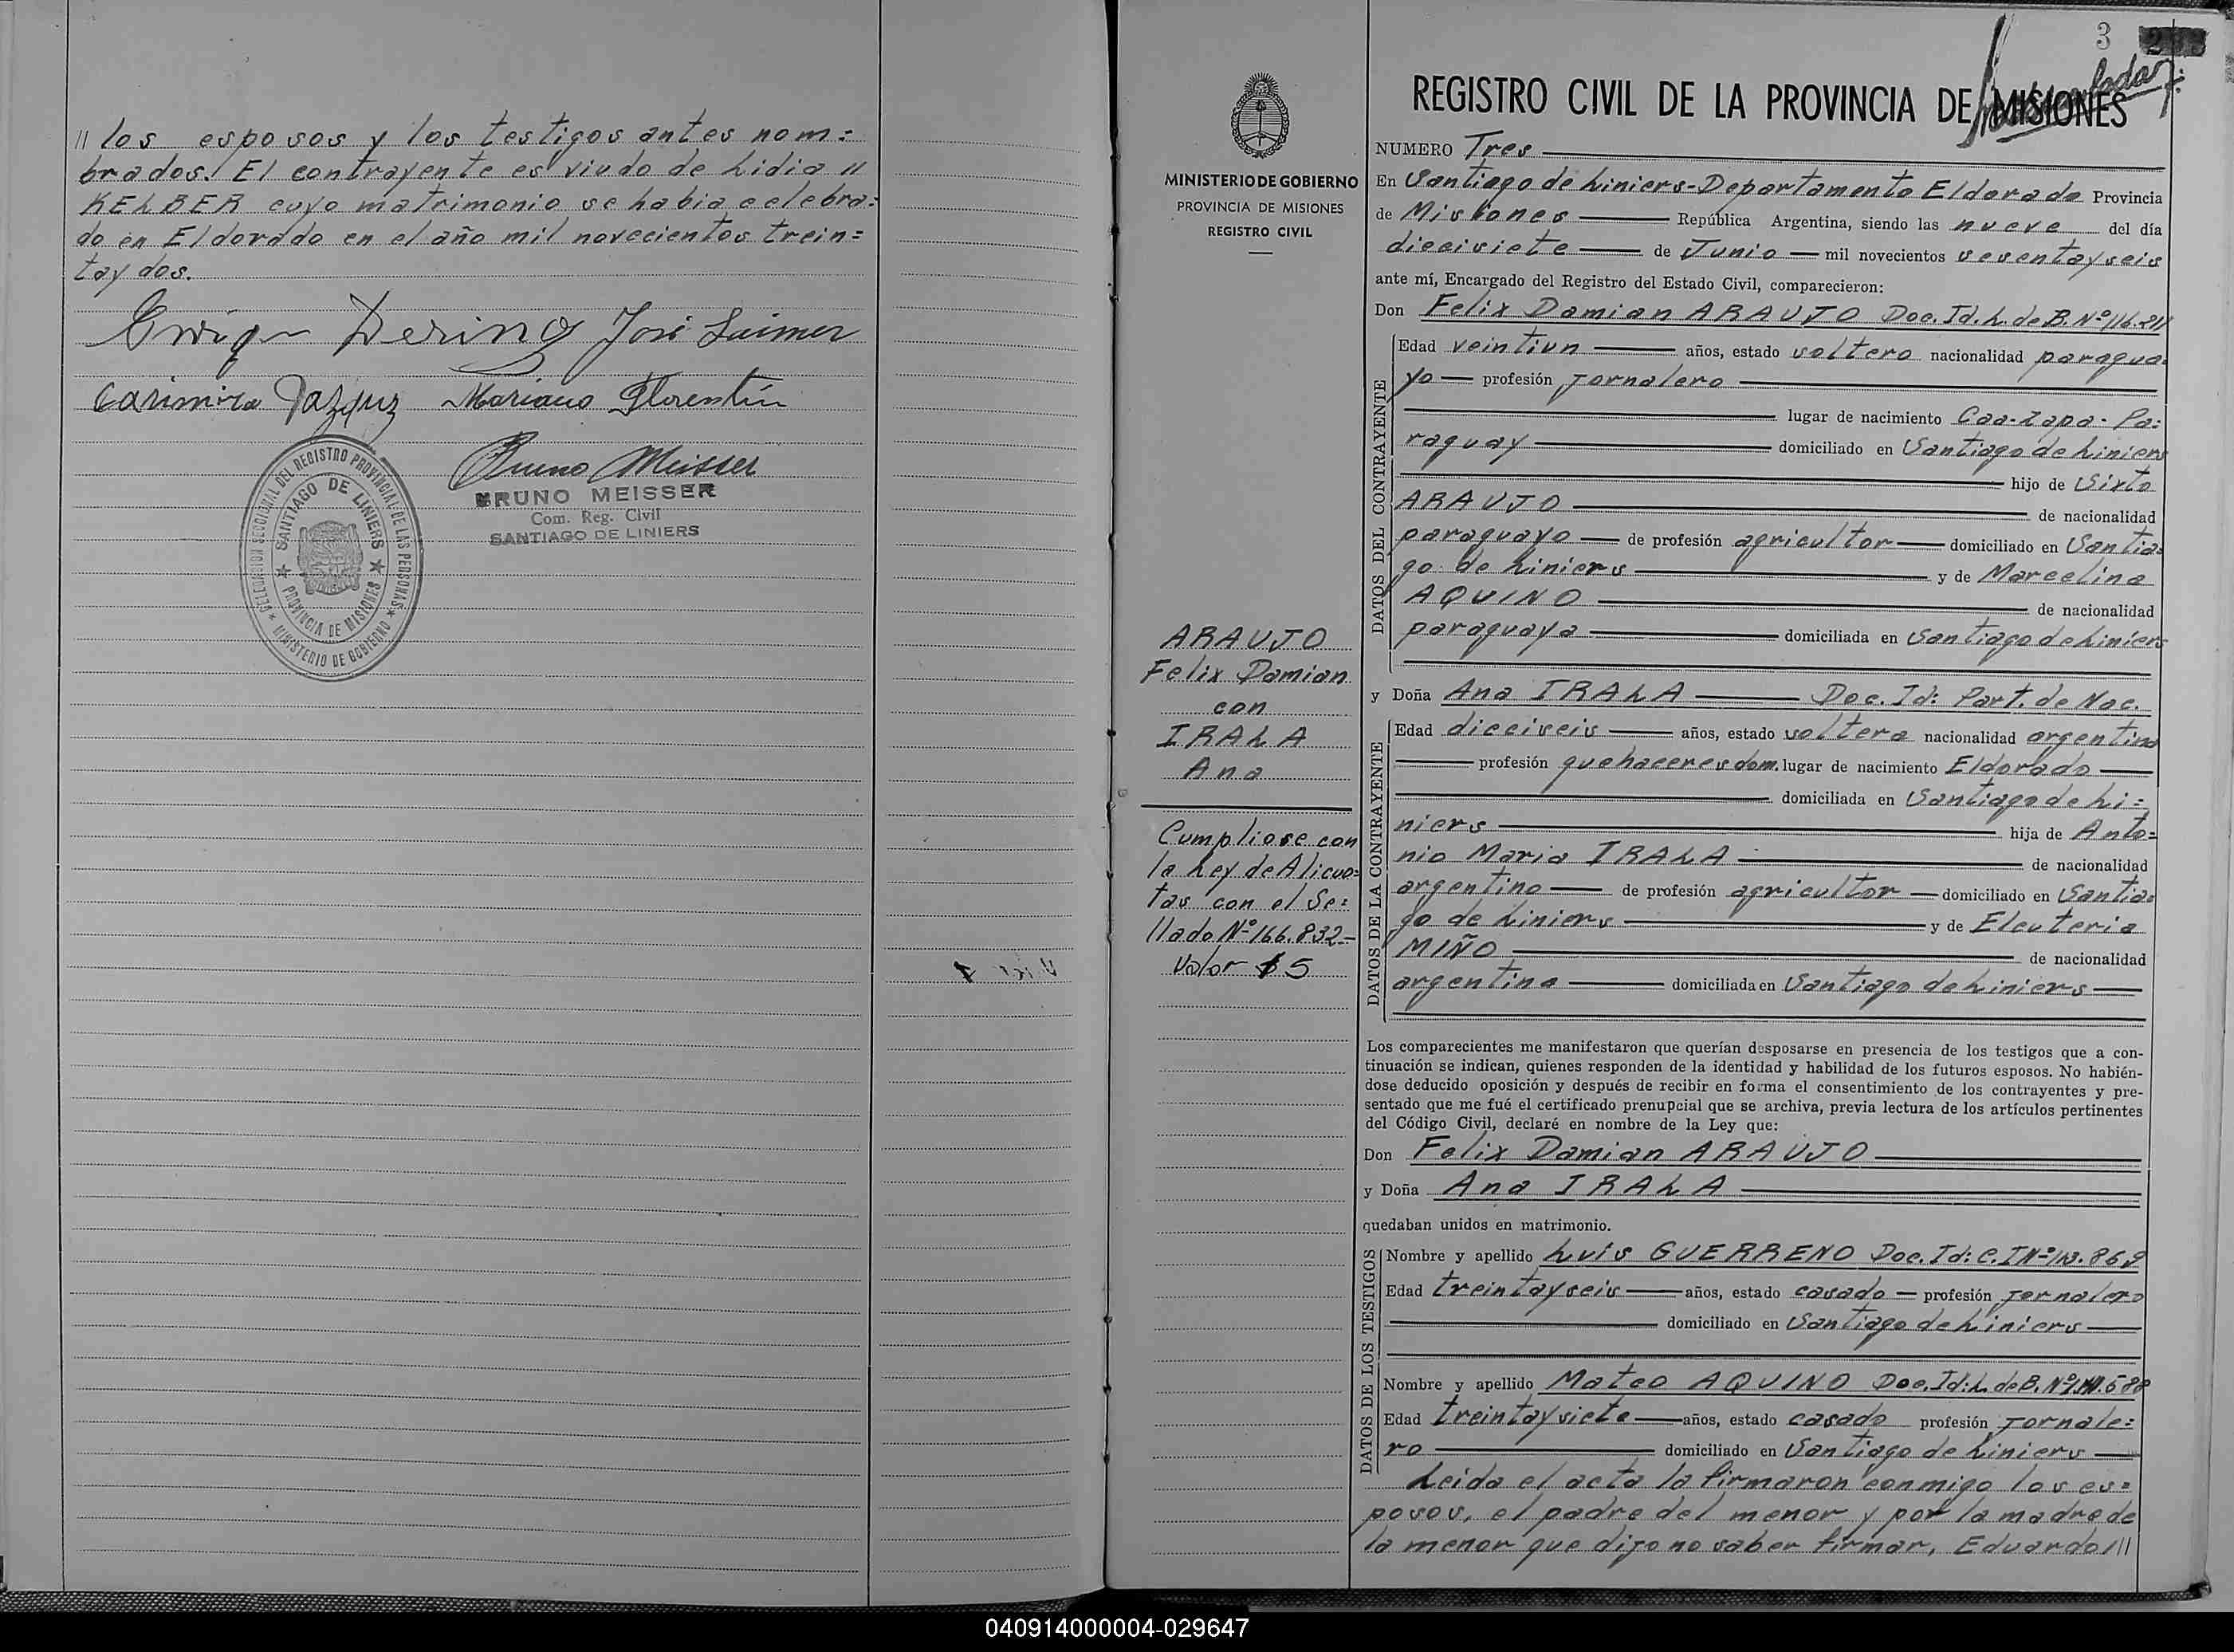 // los esposos y los testigos antes nom=
brados. El contrayente es viudo de Lidia //
KELBER cuyo matrimonio se habia celebra=
do en Eldorado en el año mil novecientos trein=
tay dos.
Dering José Leimer
Casimira Mariano Florentín
Bruno Meisser
BRUNO MEISSER
Com. Reg. Civil
SANTIAGO DE LINIERS
DELEGACION SECCIONAL DEL REGISTRO PROVINCIAL DE LAS PERSONAS
SANTIAGO DE LINIERS
PROVINCIA DE MISIONES
MINISTERIO DE GOBIERNO
3
MINISTERIO DE GOBIERNO
PROVINCIA DE MISIONES
REGISTRO CIVIL
ARAUJO
Felix Damian
con
IRALA
Ana
Cumpliose con
la Ley de Alicuo=
tas con el Se=
llado Nº 166.832-
Valor $ 5
REGISTRO CIVIL DE LA PROVINCIA DE MISIONES
NUMERO Tres
En Santiago de Liniers-Departamento Eldorado Provincia
de Misiones República Argentina, siendo las nueve del día
diecisiete de Junio mil novecientos sesentayseis
ante mí, Encargado del Registro del Estado Civil, comparecieron:
Don Felix Damian ARAUJO Doc. Id. L. de B. Nº 116.211
DATOS DEL CONTRAYENTE
Edad veintiun años, estado soltero nacionalidad paragua=
yo profesión jornalero
lugar de nacimiento Caa-Zapa-Pa=
raguay domiciliado en Santiago de Liniers
hijo de Sixto
ARAUJO de nacionalidad
paraguayo de profesión agricultor domiciliado en Santia=
go de Liniers y de Marcelina
AQUINO de nacionalidad
paraguaya domiciliada en Santiago de Liniers
y Doña Ana IRALA Doc. Id: Part. de Nac.
DATOS DE LA CONTRAYENTE
Edad dieciseis años, estado soltera nacionalidad argentina
profesión quehaceres dom. lugar de nacimiento Eldorado
domiciliada en Santiago de Li=
niers hija de Anto=
nio Maria IRALA de nacionalidad
argentino de profesión agricultor domiciliado en Santia=
go de Liniers y de Eleuteria
MIÑO de nacionalidad
argentina domiciliada en Santiago de Liniers
Los comparecientes me manifestaron que querían desposarse en presencia de los testigos que a con-
tinuación se indican, quienes responden de la identidad y habilidad de los futuros esposos. No habién-
dose deducido oposición y después de recibir en forma el consentimiento de los contrayentes y pre-
sentado que me fué el certificado prenupcial que se archiva, previa lectura de los artículos pertinentes
del Código Civil, declaré en nombre de la Ley que:
Don Felix Damian ARAUJO
y Doña Ana IRALA
quedaban unidos en matrimonio.
DATOS DE LOS TESTIGOS
Nombre y apellido Luis GUERRENO Doc. Id: C. I Nº
Edad treintayseis años, estado casado profesión jornalero
domiciliado en Santiago de Liniers
Nombre y apellido Mateo AQUINO Doc. Id: L. de B. Nº
Edad treintaysiete años, estado casado profesión jornale=
ro domiciliado en Santiago de Liniers
Leida el acta la firmaron conmigo los es=
posos, el padre del menor y por la madre de
la menor que dijo no saber firmar, Eduardo ///
040914000004-029647